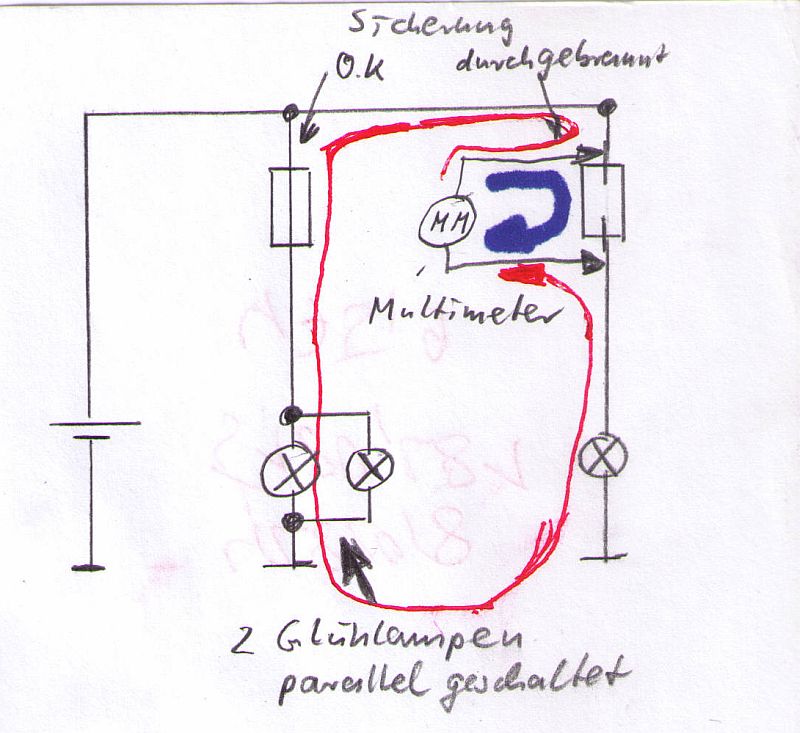 Sicherung
O.K durchgebrannt
MM
Multimeter
2 Glühlampen
parallel geschaltet